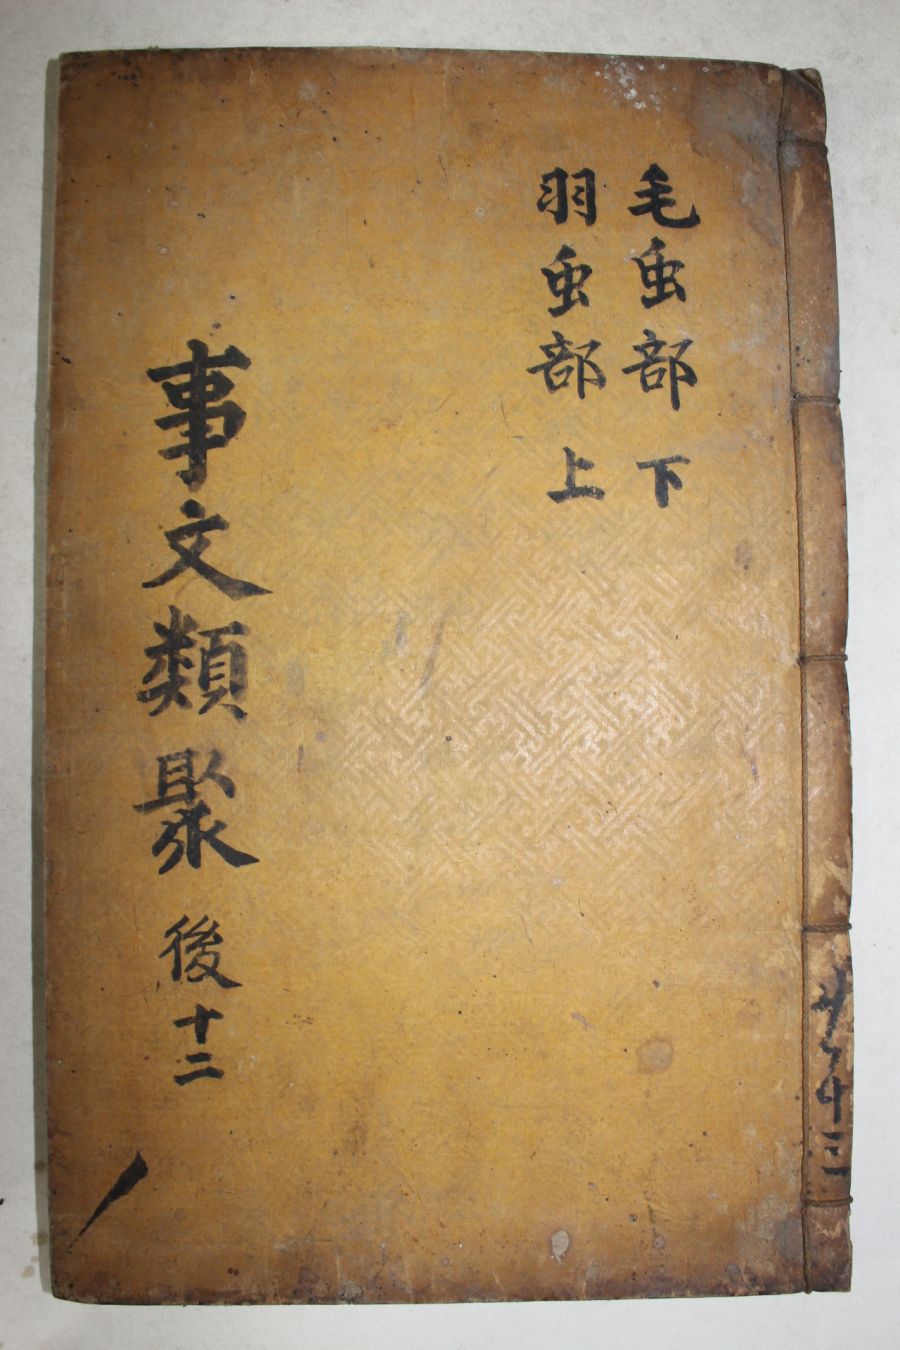 毛虫部 下
羽虫部 上
事文類聚 後十二